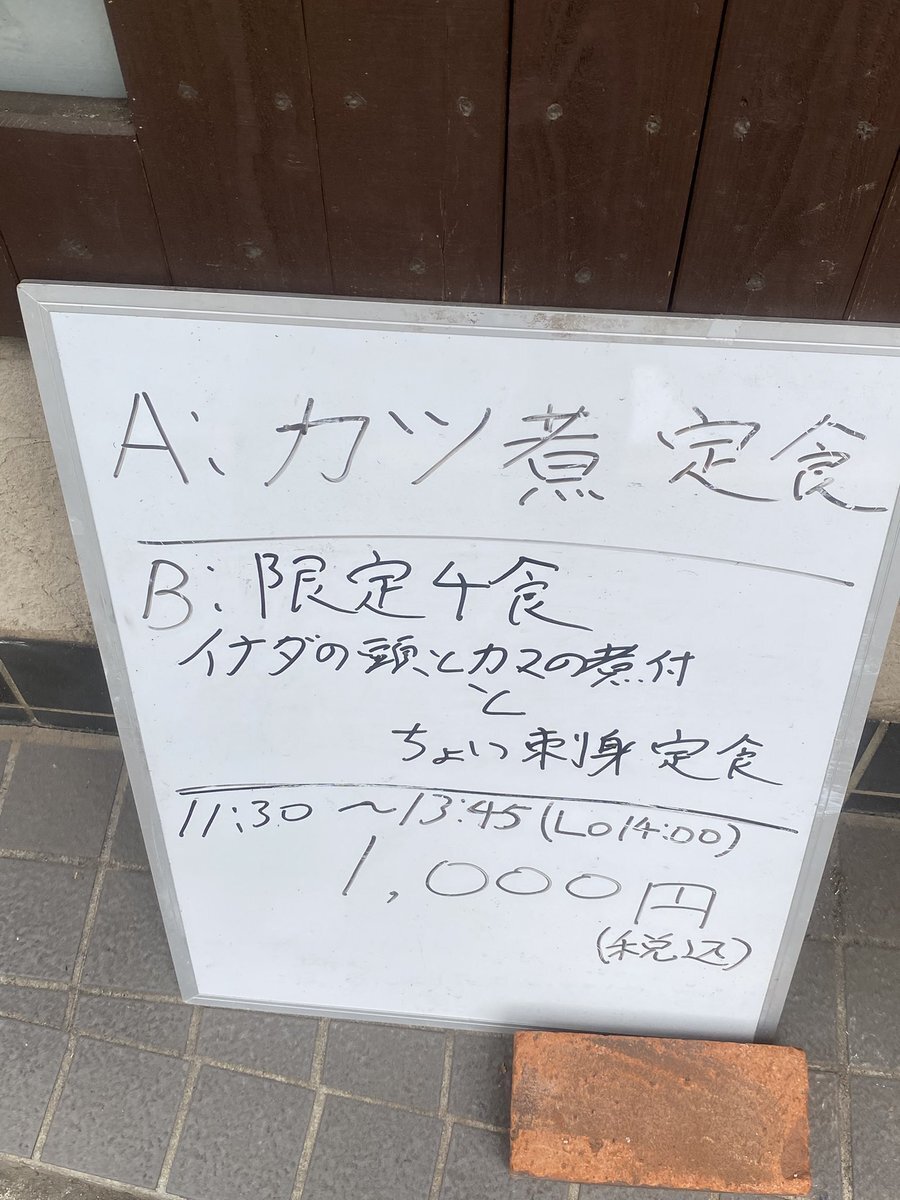 A: カツ煮定食
B: 限定4食
イナダの頭とカマの煮付
と
ちょい刺身定食
11:30 〜13:45(LO14:00)
1,000円
(税込)